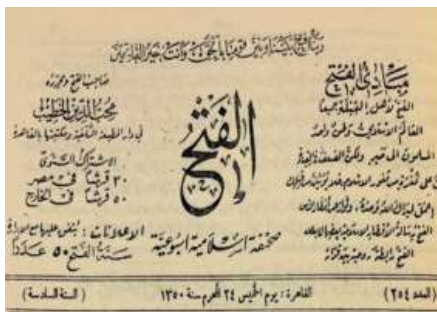 ربنا افتح بيننا وبين قومنا بالحق وأنت خير الفاتحين
مبادئ الفتح
الفتح لأهل القبلة جميعا
العالم الإسلامي وطن واحد
المسلمون الى خير
الفتح
صحيفة إسلامية أسبوعية
صاحب الفتح ومحرره
محب الدين الخطيب
في دار المطبعة السلفية ومكتبتها بالقاهرة
الاشتراك السنوي
٣٠ قرشا في مصر
٥٠ قرشا في الخارج
الاعلانات : يتفق عليها مع الادارة
سنة الفتح ٥٠ عددا
(العدد ٢٥٤)
القاهرة : يوم الخميس ٢٤ المحرم سنة ١٣٥٠
(السنة السادسة)